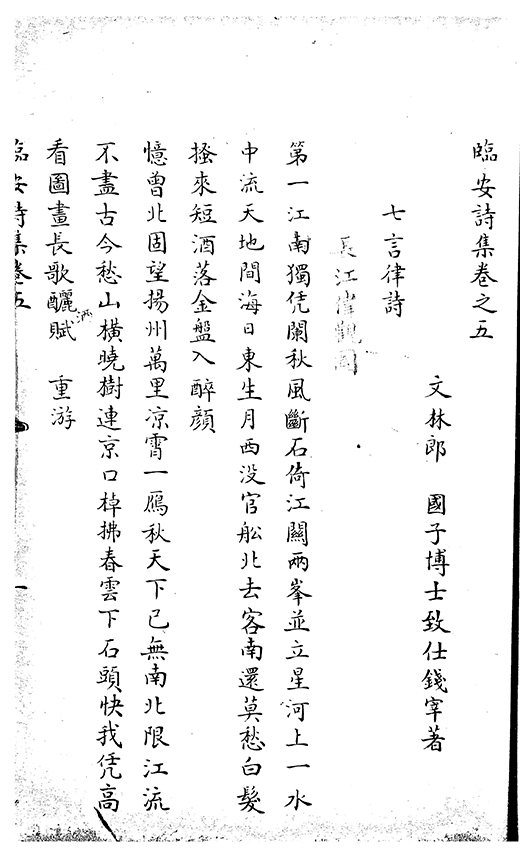 臨安詩集卷之五
文林郎　國子博士致仕錢宰著
七言律詩
長江岸觀圖
第一江南獨凭闌秋風斷石倚江關兩峯並立星河上一水
中流天地間海日東生月西没官船北去客南還莫愁白髮
搔來短酒落金盤入醉顔
憶曾北固望揚州萬里凉霄一鴈秋天下已無南北限江流
不盡古今愁山橫曉樹連京口棹拂春雲下石頭快我凭高
看圖畫長歌釃賦　重游
酒
臨安詩集卷五
一